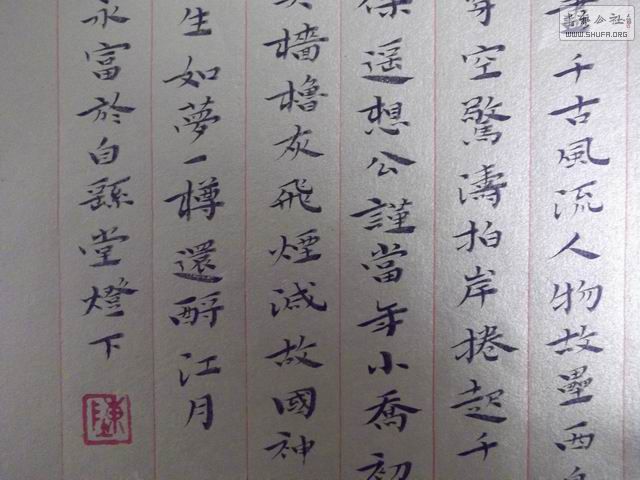 千古風流人物故壘西
空驚濤拍岸捲起千
遥想公謹當年小喬初
檣櫓灰飛煙滅故國神
生如夢一樽還酹江月
永富於自繇堂燈下
陳
書法公社
WWW.SHUFA.ORG